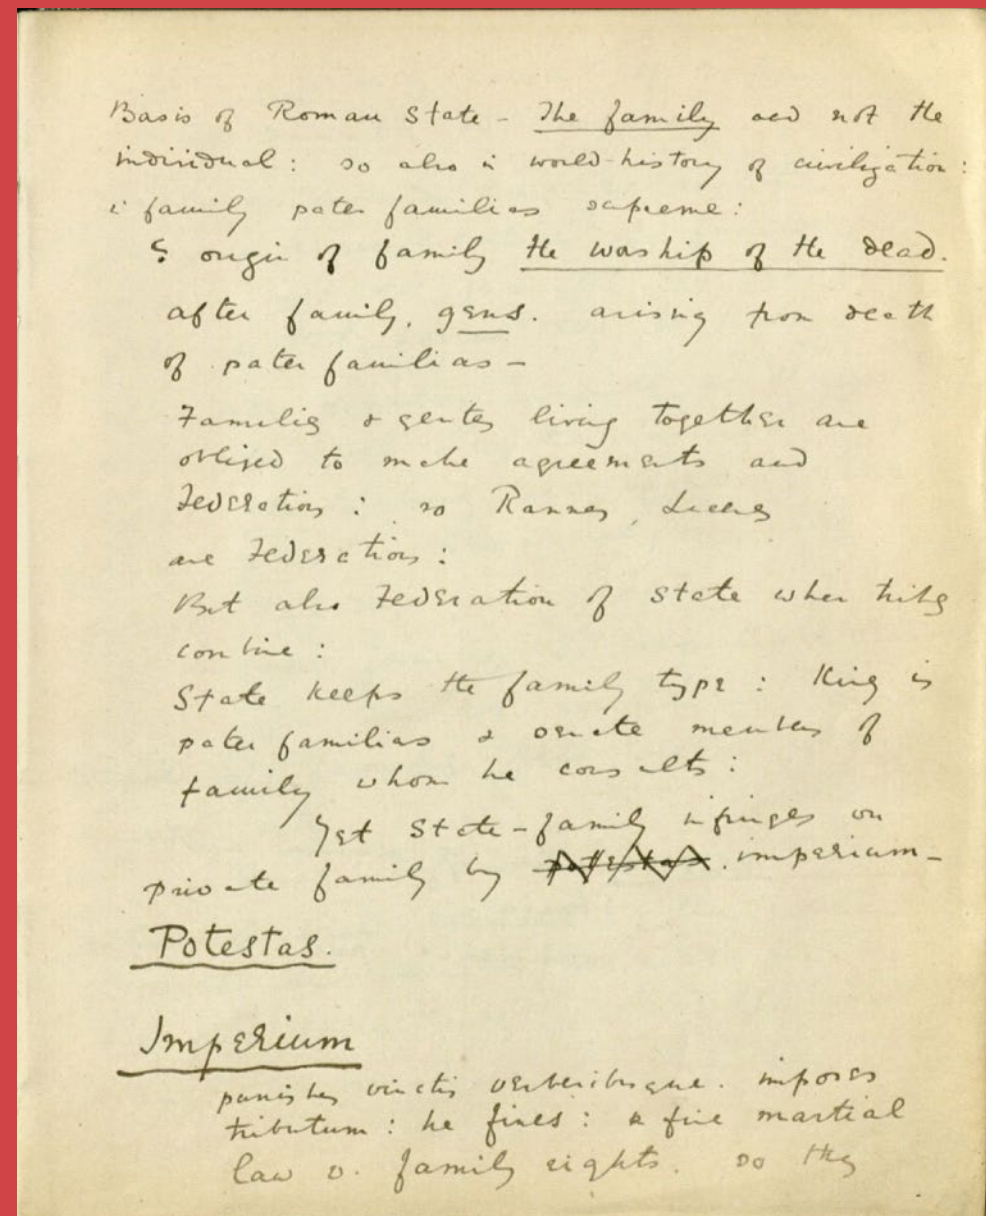 Basis of Roman State - The family and not the
individual: so also in world-history of civilization:
in family pater familias supreme:
? origin of family the worship of the dead.
after family, gens. arising from death
of pater familias -
Families & gentes living together are
obliged to make agreements and
Federations: so Ramnes, Luceres
are Federations:
But also Federation of State when tribes
combine:
State keeps the family type: King is
pater familias & senate members of
family whom he consults:
Yet State-family infringes on
private family by potestas. imperium -
Potestas.
Imperium
punishes vinclis verberibusque. imposes
tributum: he fines: martial
law v. family rights. so they